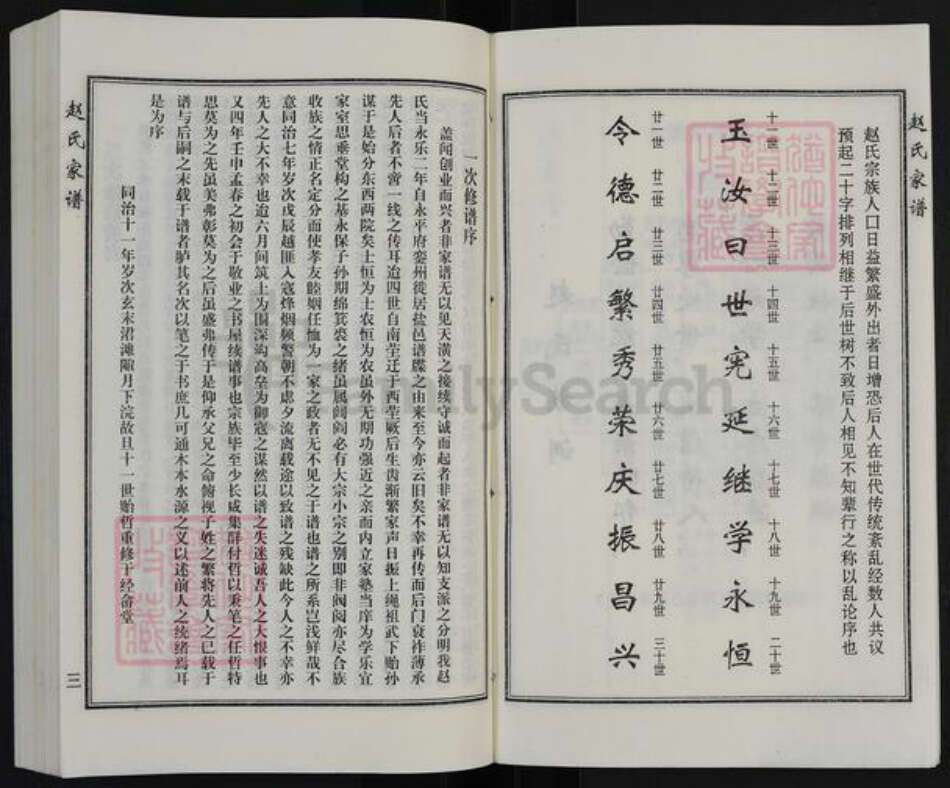 赵氏家谱
赵氏宗族人口日益繁盛外出者日增恐后人在世代传统紊乱经数人共议
预起二十字排列相继于后世树不致后人相见不知辈行之称以乱论序也
十一世 十二世 十三世 十四世 十五世 十六世 十七世 十八世 十九世 二十世
玉汝曰世宪延继学永恒
廿一世 廿二世 廿三世 廿四世 廿五世 廿六世 廿七世 廿八世 廿九世 三十世
令德启繁秀荣庆振昌兴
一次修谱序
盖闻创业而兴者非家谱无以见天潢之接续守诚而起者非家谱无以知支派之分明我赵
氏当永乐二年自永平府栾州徙居盐邑谱牒之由来至今亦云旧矣不幸再传而后门衰祚薄承
先人后者不啻一线之传耳迨四世自南茔迁于西茔厥后生齿渐繁家声日振上绳祖武下贻孙
谋于是始分东西两院矣士恒为士农恒为农虽外无期功强近之亲而内立家塾当庠为学乐宜
家室思垂堂构之基永保子孙期绵箕裘之绪虽属阀阅必有大宗小宗之别即非阀阅亦尽合族
收族之情正名定分而使孝友睦姻任恤为一家之政者无不见之于谱也谱之所系岂浅鲜哉不
意同治七年岁次戊辰越匪入寇烽烟频警朝不虑夕流离载途以致谱之残缺此今人之不幸亦
先人之大不幸也迨六月间筑土为围深沟高垒为御寇之谋然以谱之失迷诚吾人之大恨事也
又四年壬申孟春之初会于敬业之书屋续谱事也宗族毕至少长咸集群付哲以秉笔之任哲特
思莫为之先虽美弗彰莫为之后虽盛弗传于是仰承父兄之命俯视子姓之繁将先人之已载于
谱与后嗣之未载于谱者胪其名次以笔之于书庶几可通木本水源之义以述前人之统绪焉耳
是为序
同治十一年岁次玄末涒滩陬月下浣故旦十一世贻哲重修于经畲堂
赵氏家谱
三
FamilySearch